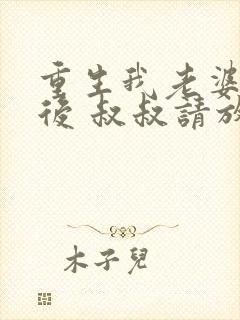 重生我老婆
後 叔叔請放
木子兒